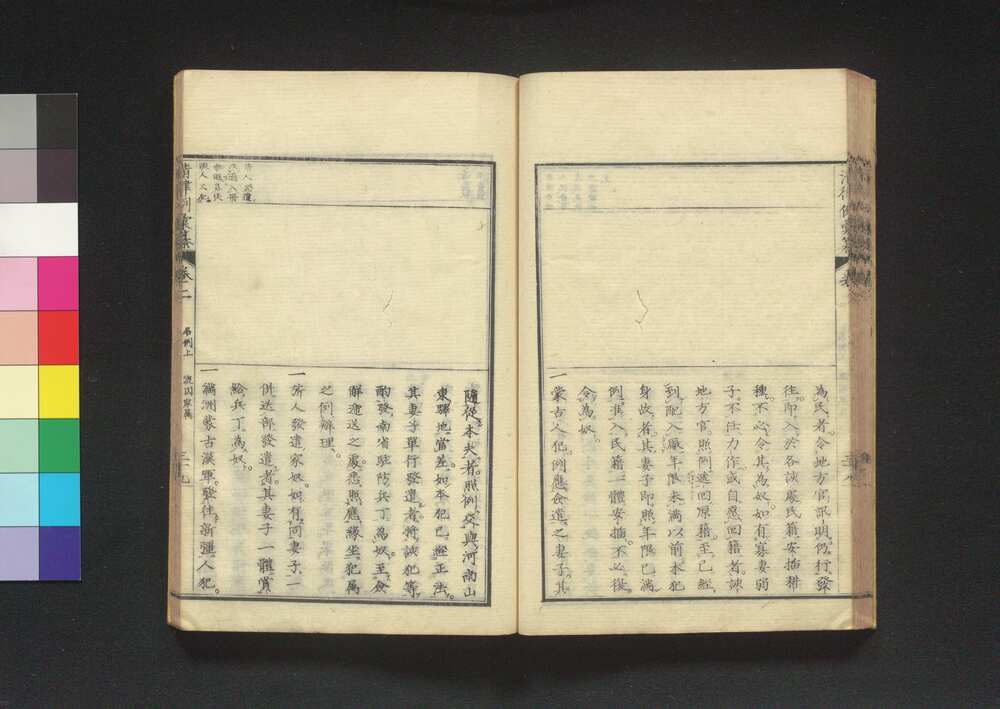 為民者。令地方官訊明。仍行發
往。即入於各該處民籍安插耕
種。不必令其為奴。如有寡妻弱
子。不任力作。或自愿回籍者。該
地方官照例遞回原籍。至已經
到配入廠年限未滿以前本犯
身故者。其妻子即照年限已滿
例。准入民籍一體安插。不必復
令為奴。
一蒙古人犯。例應僉遣之妻子。其
隨從本夫者。照例交與河南山
東驛地當差。如本犯已經正法。
其妻子單行發遣者。將該犯等
酌發南省駐防兵丁為奴。至僉
解遞送之處。悉照應緣坐犯屬
之例辦理。
一旂人發遣家奴。如有同妻子一
併送部發遣者。其妻子一體賞
給兵丁為奴。
一滿洲蒙古漢軍。發往新疆人犯。
清律例彙纂 卷二 名例上 流囚家屬 三十九